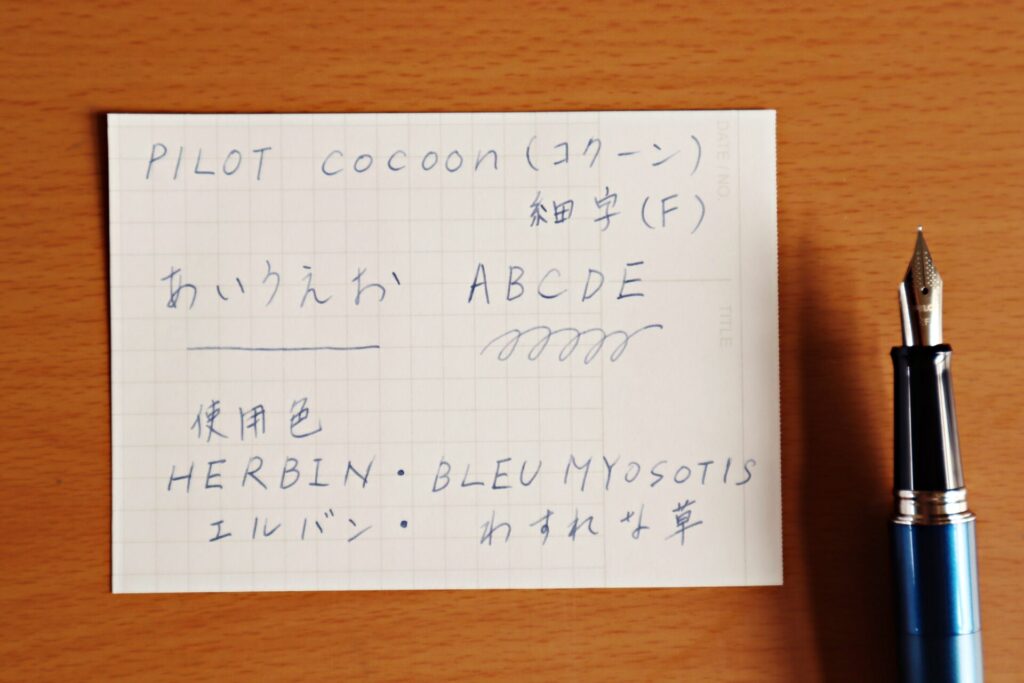 PILOT cocoon (コクーン)
細字 (F)
あいうえお ABCDE
使用色
HERBIN・BLEU MYOSOTIS
エルバン・ わすれな草
DATE / NO.
TITLE